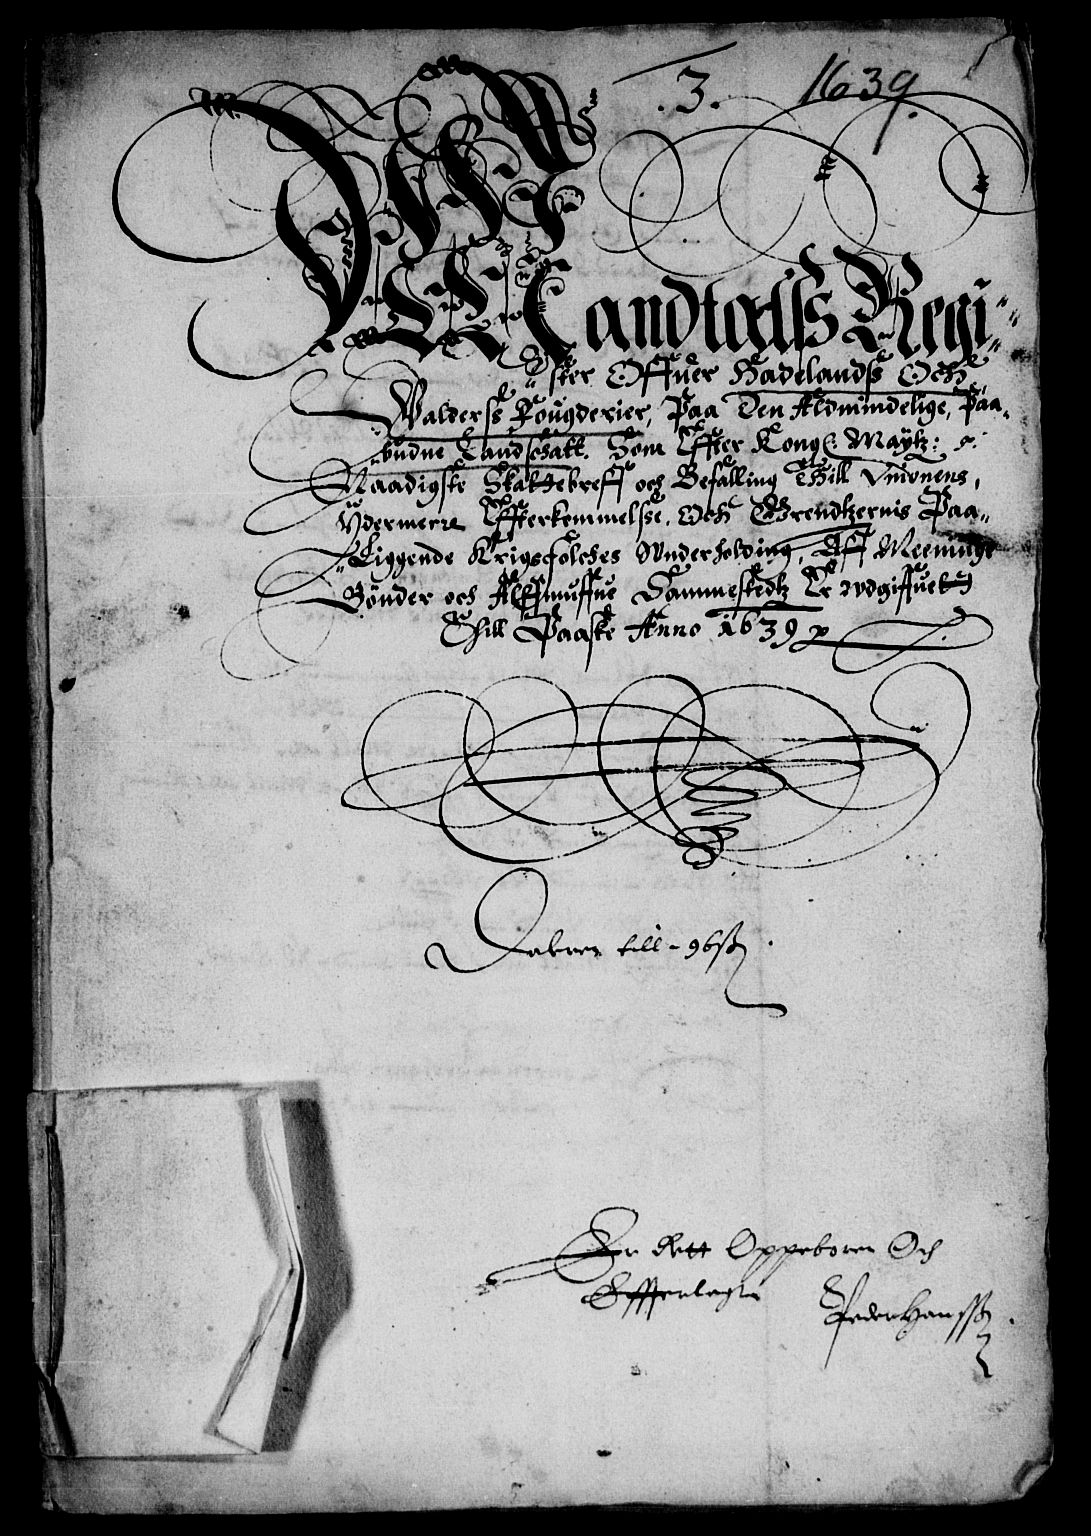 .3. 1639.
Mandtalls Regi-
ster Offuer Hadelandß Och
Valderß Fougderier, Paa Den Aldmindelige, Paa-
budne Landschatt, Som Effter Kong: Maytz:
Naadigste Skattebreff och Befalling Thill Vnionens,
Ydermerre Effterkommelse, Och Grendtzernis Paa-
Liggende Krigsfolches Wnderholding, Aff Meeninge
Bønder och Allmuffue Sammestedtz Er wdgiffuet
Thill Paaske Anno 1639
till - 96
Er Rett Oppeboren Och
Effterlagt
Peder Hanssß